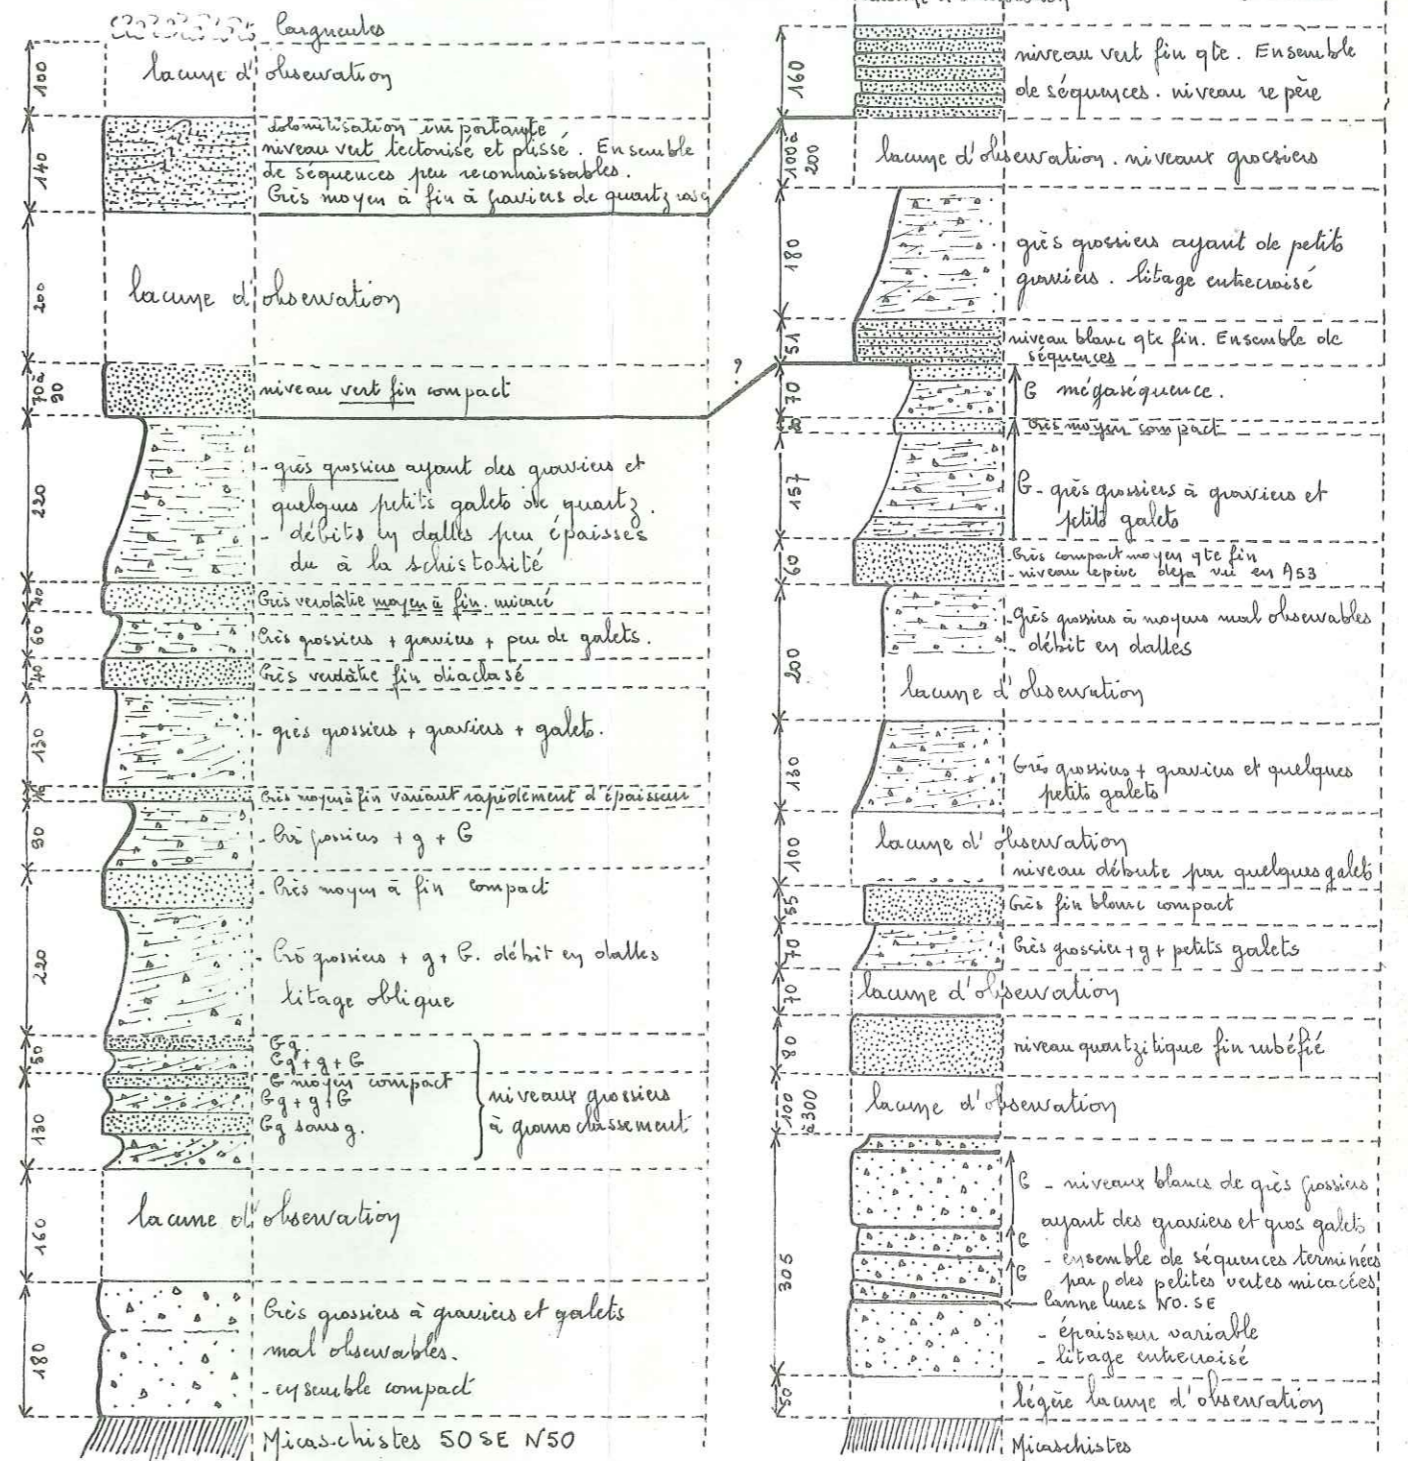 Cargneules
100
lacune d'observation
140
dolomitisation importante
niveau vert tectonisé et plissé. Ensemble
de séquences peu reconnaissables.
Grès moyen à fin à graviers de quartz rose
200
lacune d'observation
70 à
90
niveau vert fin compact
220
- grès grossiers ayant des graviers et
quelques petits galets de quartz.
- débits en dalles peu épaisses
du à la schistosité
40
Grès verdâtre moyen à fin. micacé
60
Grès grossiers + graviers + peu de galets.
40
Grès verdâtre fin diaclasé
130
- grès grossiers + graviers + galets.
Grès moyen à fin variant rapidement d'épaisseur
90
- Grès grossiers + g + G
- Grès moyen à fin compact
220
- Grès grossiers + g + G. débit en dalles
litage oblique
50
Gg
Gg + g + G
G moyen compact
Gg + g + G
Gg sans g.
niveaux grossiers
à granoclassement
130
160
lacune d'observation
180
Grès grossiers à graviers et galets
mal observables.
- ensemble compact
Micaschistes 50 SE N50
?
160
niveau vert fin qte. Ensemble
de séquences. niveau repère
100 à
200
lacune d'observation. niveaux grossiers
180
grès grossiers ayant de petits
graviers. litage entrecroisé
51
niveau blanc qte fin. Ensemble de
séquences
70
G mégaséquence.
Grès moyen compact
157
G - grès grossiers à graviers et
petits galets
60
- Grès compact moyen qte fin
- niveau repère déjà vu en A53
200
- Grès grossiers à moyens mal observables
- débit en dalles
lacune d'observation
130
Grès grossiers + graviers et quelques
petits galets
100
lacune d'observation
niveau débute par quelques galets
55
Grès fin blanc compact
70
Grès grossier + g + petits galets
70
lacune d'observation
80
niveau quartzitique fin rubéfié
100
à 300
lacune d'observation
305
G - niveaux blancs de grès grossiers
ayant des graviers et gros galets
G - ensemble de séquences terminées
G par des pelites vertes micacées
Cannelures NO.SE
- épaisseur variable
- litage entrecroisé
50
légère lacune d'observation
Micaschistes